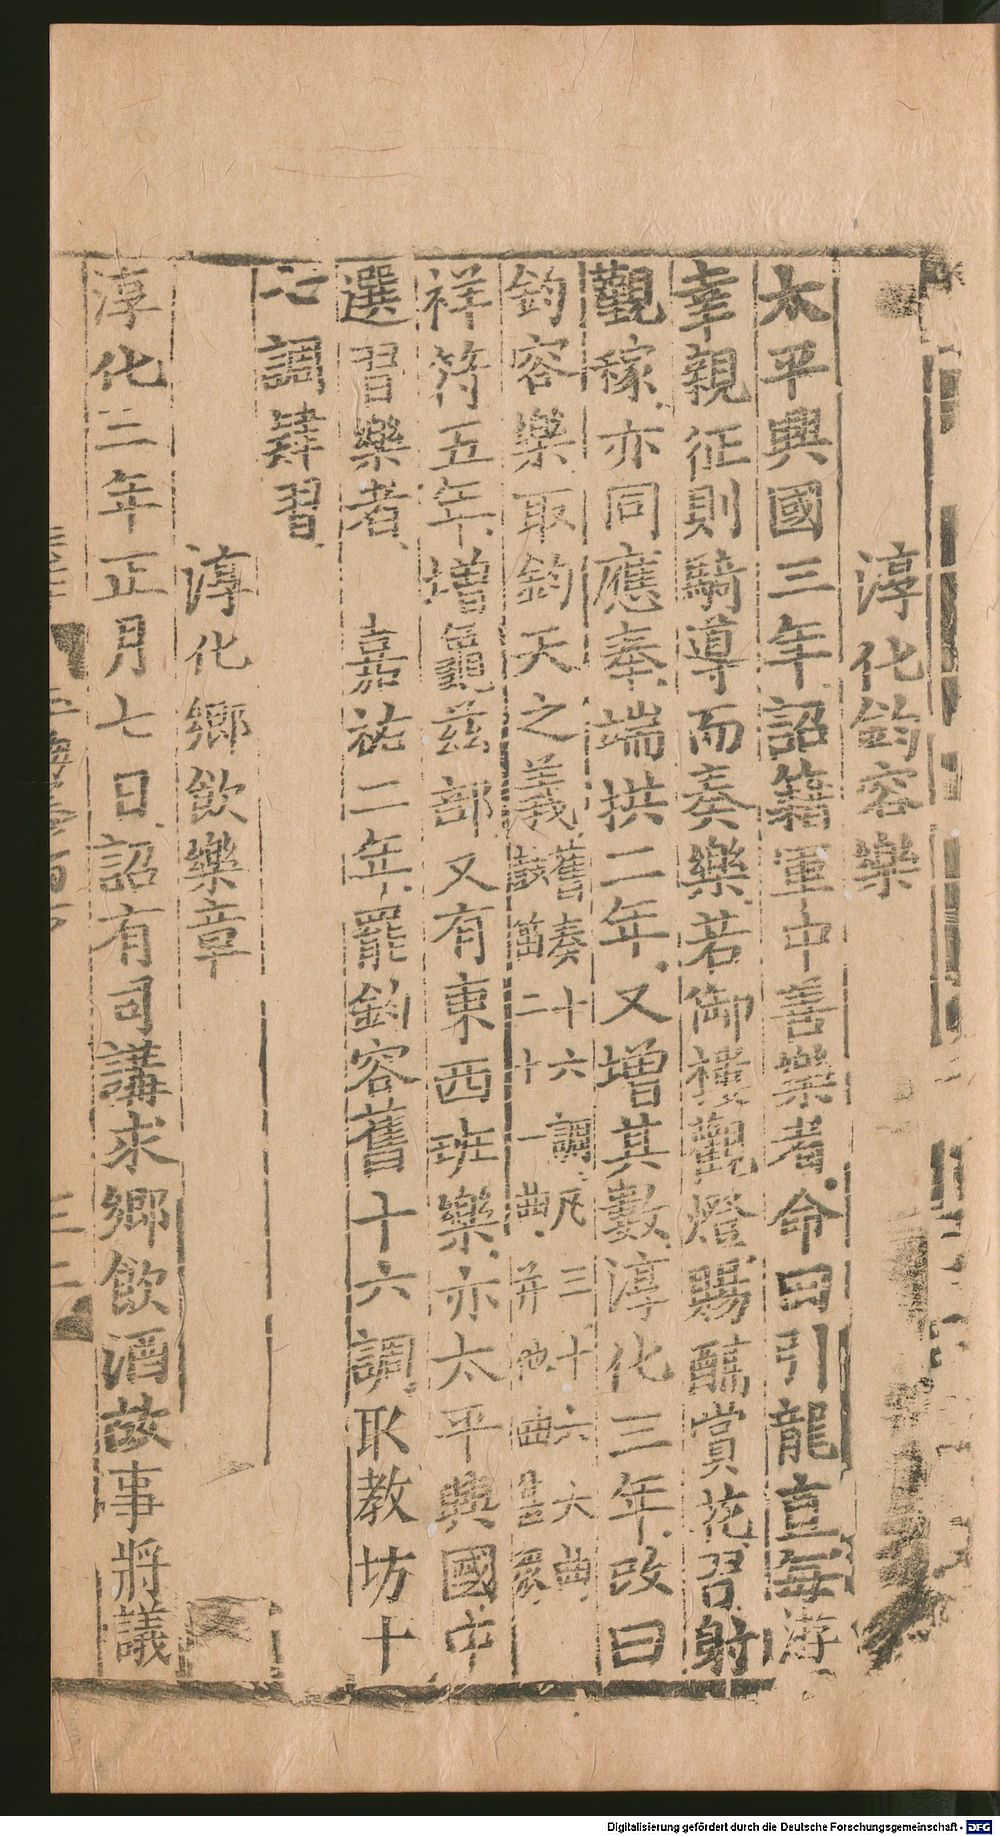 淳化鈞容樂
太平興國三年詔籍軍中善樂者命曰引龍直每游
幸親征則騎導而奏樂若御樓觀燈賜酺賞花習射
觀稼亦同應奉端拱二年又增其數淳化三年改曰
鈞容樂取鈞天之義舊奏十六調凡三十六大曲
鼓笛二十一曲并他曲甚衆
祥符五年增龜茲部又有東西班樂亦太平興國中
選習樂者 嘉祐二年罷鈞容舊十六調取教坊十
七調肄習
淳化鄉飲樂章
淳化三年正月七日詔有司講求鄉飲酒故事將議
Digitalisierung gefördert durch die Deutsche Forschungsgemeinschaft - DFG